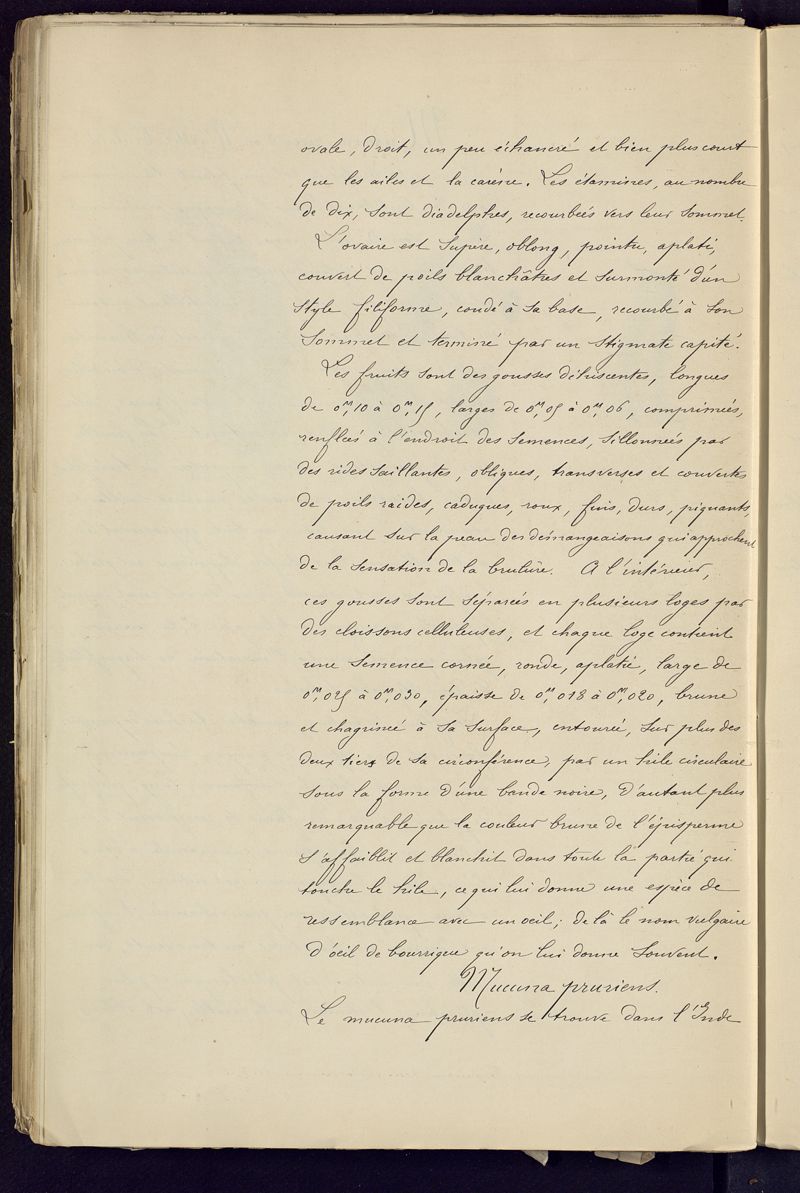 ovale, droit, un peu échancré et bien plus court
que les ailes et la carène. Les étamines, au nombre
de dix, sont diadelphes, recourbées vers leur sommet.
L'ovaire est supère, oblong, pointu, aplati,
couvert de poils blanchâtres et surmonté d'un
style filiforme, coudé à sa base, recourbé à son
sommet et terminé par un stigmate capité.
Les fruits sont des gousses déhiscentes, longues
de 0m,10 à 0m,15, larges de 0m,05 à 0m,06, comprimées,
renflées à l'endroit des semences, sillonnées par
des rides saillantes, obliques, transverses et couvertes
de poils raides, caduques, roux, fins, durs, piquants,
causant sur la peau des démangeaisons qui approchent
de la sensation de la brulûre. A l'intérieur,
ces gousses sont séparées en plusieurs loges par
des cloissons celluleuses, et chaque loge contient
une semence cornée, ronde, aplatie, large de
0m,025 à 0m,030, épaisse de 0m,018 à 0m,020, brune
et chagrinée à sa surface, entourée, sur plus des
deux tiers de sa circonférence, par un hile circulaire
sous la forme d'une bande noire, d'autant plus
remarquable que la couleur brune de l'épisperme
s'affaiblit et blanchit dans toute la partie qui
touche le hile, ce qui lui donne une espèce de
ressemblance avec un oeil; de là le nom vulgaire
d'oeil de bourrique qu'on lui donne souvent.
Mucuna pruriens.
Le mucuna pruriens se trouve dans l'Inde